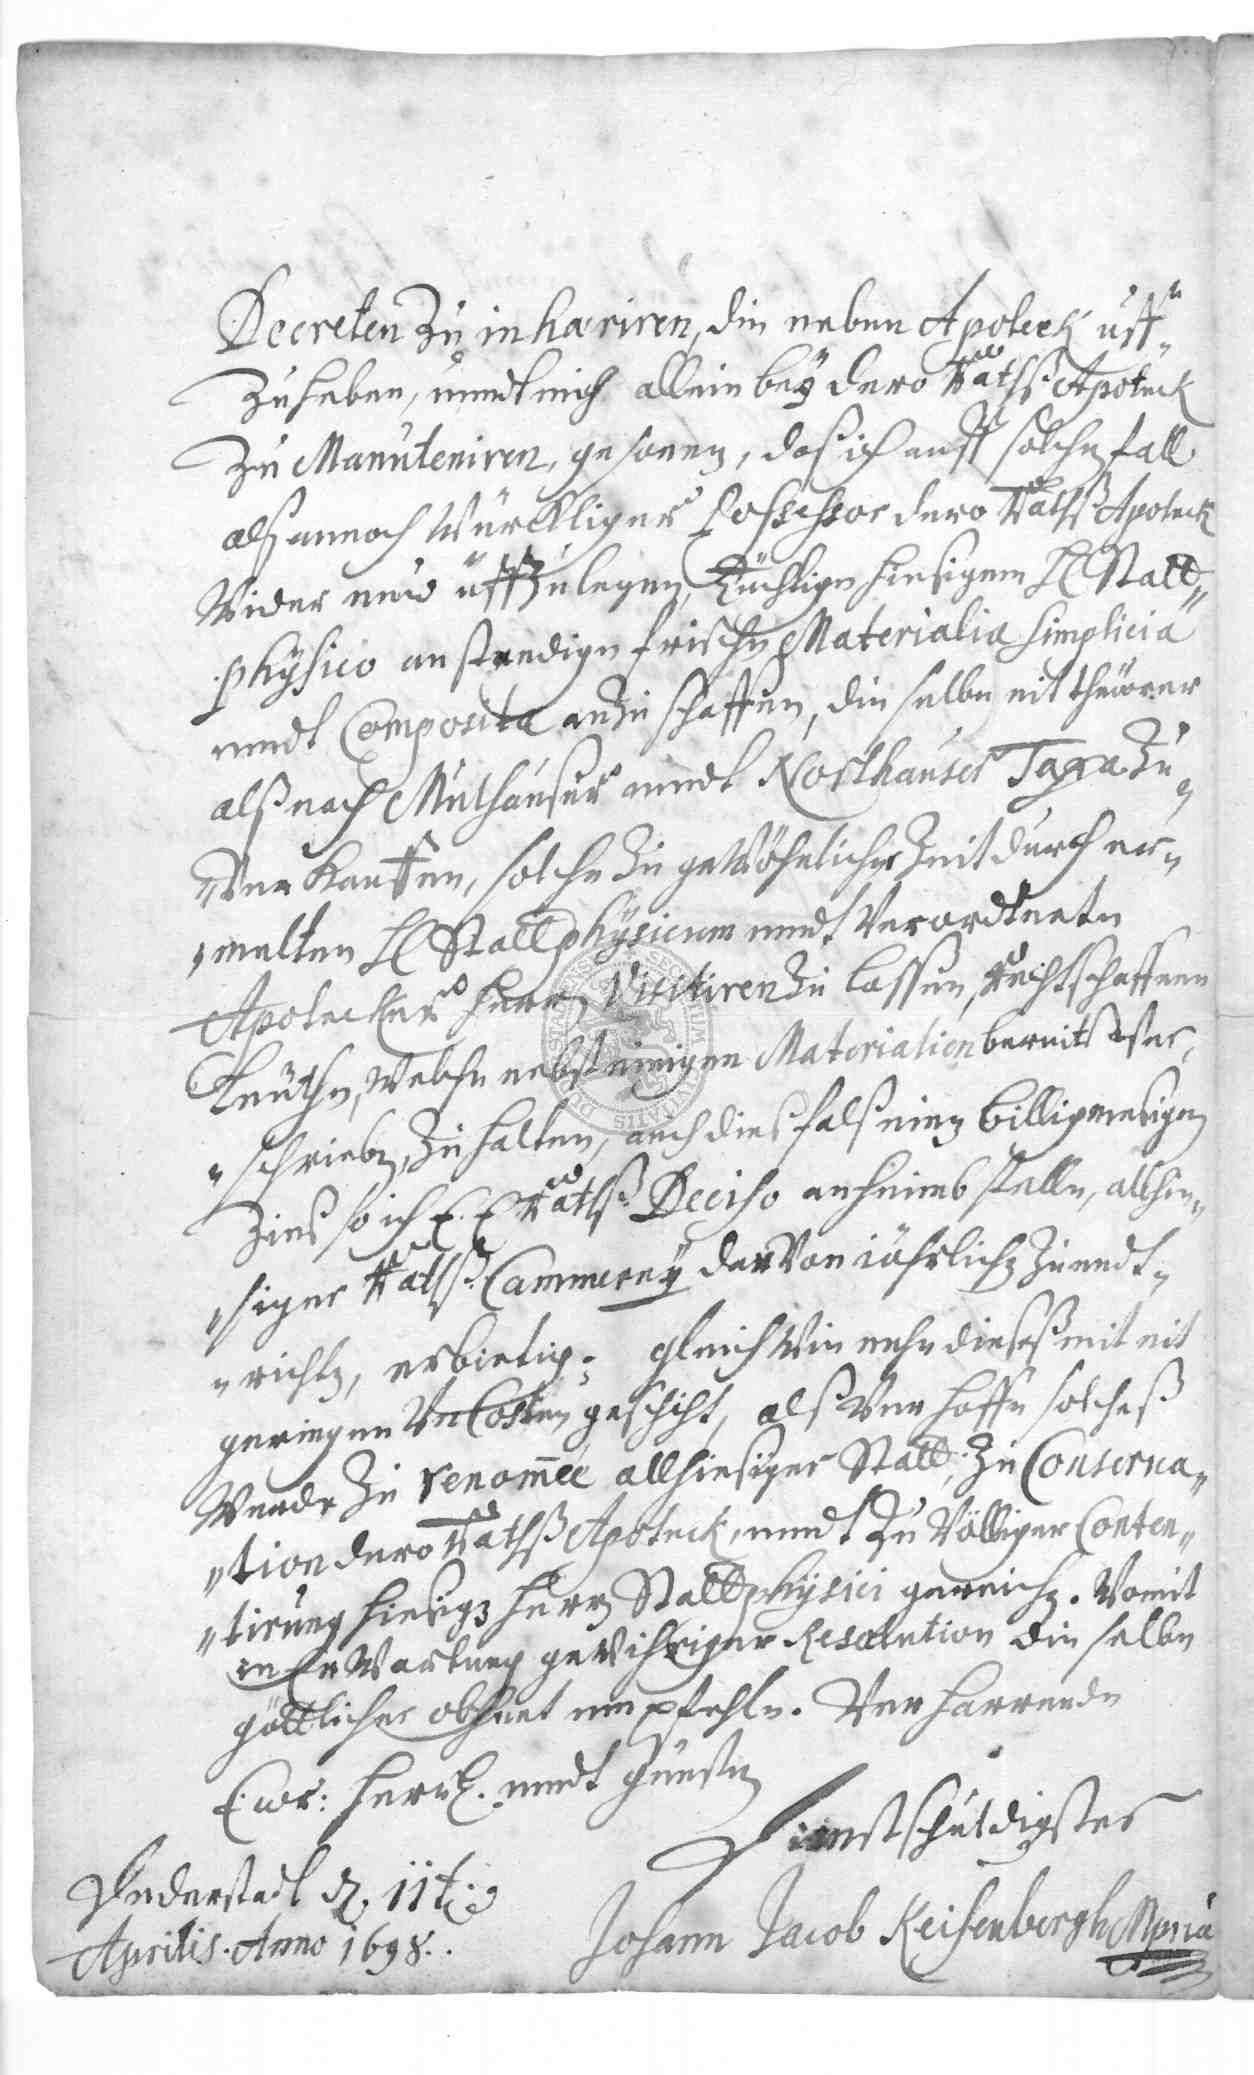 Decreten zu inhæriren, die neben Apoteck uff„
zuheben, unndt mich allein bey dero Raths Apoteck
zu Manuteniren, gesonnen, daß ich auff solchen fall
alß annoch würcklicher Possessor dero Raths Apoteck
wider new uffzulegen, Tüchtige hiesigem H Statt„
physico anstendige frische Materialia simplicia
unndt Composita anzuschaffen, die selbe nit theürer
alß nach Mülhauser unndt Northauser Taxa zu„
„verkauffen, solche zu gewöhnlicher Zeit durch er„
„melten H Stattphysicum unndt verordtnete
Apotecker herrn visitiren zu lassen, Rechtschaffene
Leüthe, welche nebst einigen Materialien bereits ver„
„schrieben, zu halten, auch dies falß einen billigmesigen
Zins so ich E. E Raths Deciso anheimb stelle, allhie„
„siger Raths Cammerey dervon jährlich zu endt„
„richten, erbietig. gleich wie nuhn dieseß mit nit
geringen Uncosten geschiht, alß verhoffe solcheß
werde zu renom̄ée allhiesiger Statt, zu Conserva„
„tion dero Raths Apoteck, unndt zu völliger Conten„
„tirung hiesigen herrn Stattphysici gereichen. Womit
in Erwartung gewihriger Resolution die selbe
göttlicher obhuet empfehle. Verharrende
E. wr: herrl. unndt günsten
Dienstschuldigster
Duderstadt d. 11t
Aprilis. Anno 1698.
Johann Jacob Keisenbergh Mpria